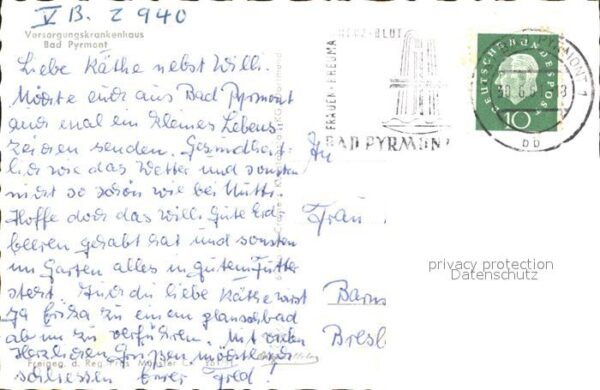 V B. Z 940
Versorgungskrankenhaus
Bad Pyrmont
Liebe Käthe nebst Willi.
Möchte euch aus Bad Pyrmont
auch mal ein kleines Lebens
zeichen senden. Gesundheit-
lich wie das Wetter und sonsten
nicht so schön wie bei Mutti.
Hoffe doch das Willi gute Erd
beeren gehabt hat und sonsten
im Garten alles in gutem Futter
steht. Auch du liebe Käthe wirst
ja frisch zu einem
ab und zu verführen. Mit vielen
Herzlichen Grüssen möchte
schliessen Euer Fred.
Freigeg. d. Reg. Präs. Münster
HERZ·BLUT
FRAUEN·RHEUMA
BAD PYRMONT
BAD PYRMONT 1
DEUTSCHE BUNDESPOST
10
An
Frau
Barns
Bresl
privacy protection
Datenschutz